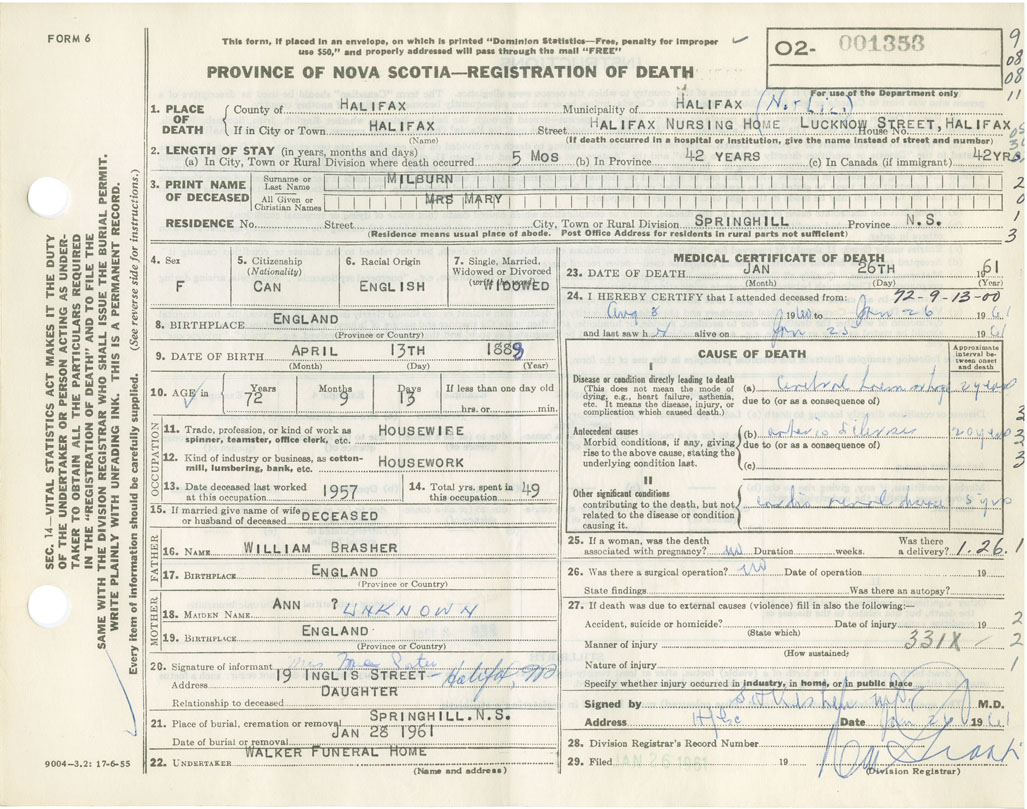 FORM 6
This form, if placed in an envelope, on which is printed "Dominion Statistics—Free, penalty for improper
use $50," and properly addressed will pass through the mail "FREE"
O2- 001353
PROVINCE OF NOVA SCOTIA—REGISTRATION OF DEATH
For use of the Department only
9
08
08
11
1. PLACE OF DEATH
County of HALIFAX Municipality of HALIFAX
If in City or Town HALIFAX Street HALIFAX NURSING HOME LUCKNOW STREET, HALIFAX House No.
(Name) (If death occurred in a hospital or institution, give the name instead of street and number)
2. LENGTH OF STAY (in years, months and days)
(a) In City, Town or Rural Division where death occurred 5 MOS (b) In Province 42 YEARS (c) In Canada (if immigrant) 42YRS
3. PRINT NAME OF DECEASED
Surname or Last Name MILBURN
All Given or Christian Names MRS MARY
RESIDENCE No. Street City, Town or Rural Division SPRINGHILL Province N.S.
(Residence means usual place of abode. Post Office Address for residents in rural parts not sufficient)
2
0
1
3
4. Sex F
5. Citizenship (Nationality) CAN
6. Racial Origin ENGLISH
7. Single, Married, Widowed or Divorced WIDOWED
8. BIRTHPLACE ENGLAND
(Province or Country)
9. DATE OF BIRTH APRIL 13TH 1888
(Month) (Day) (Year)
10. AGE in Years 72 Months 9 Days 13 If less than one day old
hrs. or min.
OCCUPATION
11. Trade, profession, or kind of work as spinner, teamster, office clerk, etc. HOUSEWIFE
12. Kind of industry or business, as cotton-mill, lumbering, bank, etc. HOUSEWORK
13. Date deceased last worked at this occupation 1957
14. Total yrs. spent in this occupation 49
15. If married give name of wife or husband of deceased DECEASED
FATHER
16. NAME WILLIAM BRASHER
17. BIRTHPLACE ENGLAND
(Province or Country)
MOTHER
18. MAIDEN NAME ANN ? UNKNOWN
19. BIRTHPLACE ENGLAND
(Province or Country)
20. Signature of informant Mrs
Address 19 INGLIS STREET- Halifax, NS
Relationship to deceased DAUGHTER
21. Place of burial, cremation or removal SPRINGHILL.N.S.
Date of burial or removal JAN 28 1961
22. UNDERTAKER WALKER FUNERAL HOME
(Name and address)
MEDICAL CERTIFICATE OF DEATH
23. DATE OF DEATH JAN 26TH 1961
(Month) (Day) (Year)
24. I HEREBY CERTIFY that I attended deceased from: 72-9-13-00
Aug 8 1960 to Jan 26 1961
and last saw h alive on Jan 25 1961
CAUSE OF DEATH
Approximate interval between onset and death
I
Disease or condition directly leading to death
(This does not mean the mode of dying, e.g., heart failure, asthenia, etc. It means the disease, injury, or complication which caused death.)
(a) Cerebral haemorrhage 2 years
due to (or as a consequence of)
Antecedent causes
Morbid conditions, if any, giving rise to the above cause, stating the underlying condition last.
(b) 20 years
due to (or as a consequence of)
(c)
II
Other significant conditions contributing to the death, but not related to the disease or condition causing it.
Cardio renal disease 5 yrs
3
3
3
3
25. If a woman, was the death associated with pregnancy? no Duration weeks. Was there a delivery? 1.26.1
26. Was there a surgical operation? no Date of operation 19
State findings Was there an autopsy?
27. If death was due to external causes (violence) fill in also the following:—
Accident, suicide or homicide? Date of injury 19 2
(State which)
Manner of injury 331X 2
(How sustained)
Nature of injury 1
Specify whether injury occurred in industry, in home, or in public place
Signed by M.D.
Address Hfx Date Jan 1961
28. Division Registrar's Record Number
29. Filed JAN 26 1961 19
(Division Registrar)
SEC. 14—VITAL STATISTICS ACT MAKES IT THE DUTY
OF THE UNDERTAKER OR PERSON ACTING AS UNDER-
TAKER TO OBTAIN ALL THE PARTICULARS REQUIRED
IN THE "REGISTRATION OF DEATH" AND TO FILE THE
SAME WITH THE DIVISION REGISTRAR WHO SHALL ISSUE THE BURIAL PERMIT.
WRITE PLAINLY WITH UNFADING INK. THIS IS A PERMANENT RECORD.
Every item of information should be carefully supplied. (See reverse side for instructions.)
9004—3.2: 17-6-55